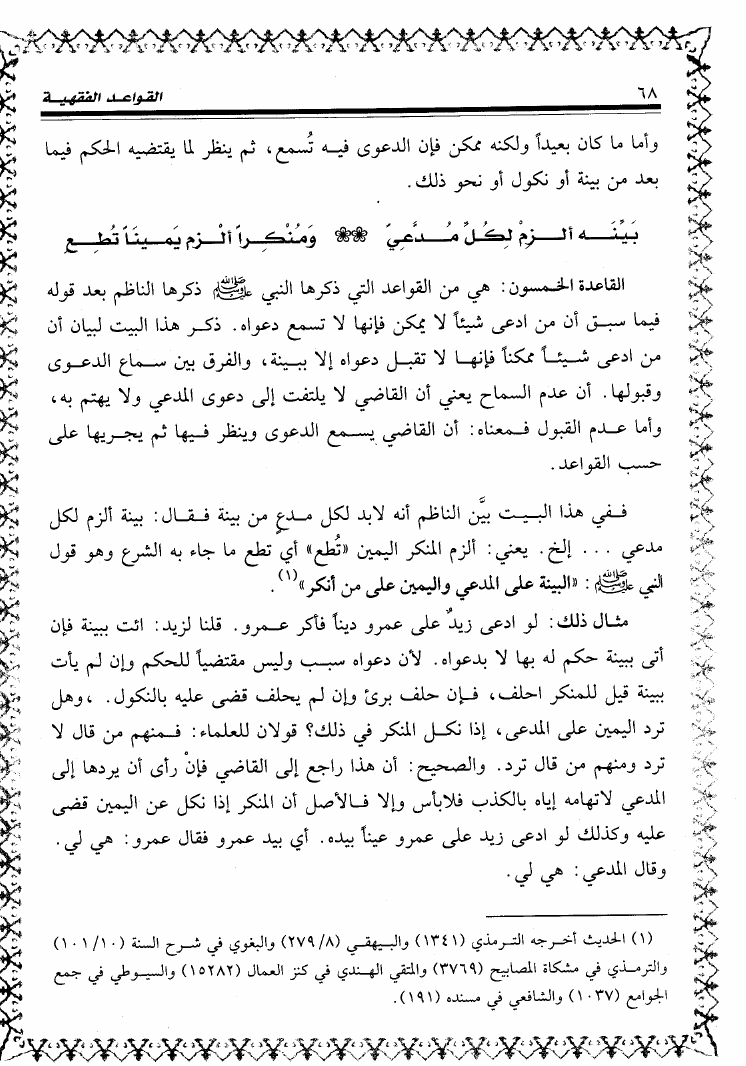 ٦٨
القواعد الفقهية
وأما ما كان بعيداً ولكنه ممكن فإن الدعوى فيه تُسمع، ثم ينظر لما يقتضيه الحكم فيما
بعد من بينة أو نكول أو نحو ذلك.
بَيِّنَـــه ألـــزمْ لِكُلِّ مُـــدَّعِيَ ❀❀ وَمُنْكـــراً ألْـــزم يَمـــينَاً تُطـــعِ
القاعدة الخمسون: هي من القواعد التي ذكرها النبي ﷺ ذكرها الناظم بعد قوله
فيما سبق أن من ادعى شيئاً لا يمكن فإنها لا تسمع دعواه. ذكـر هذا البيت لبيان أن
من ادعى شـيئـاً ممكناً فإنهـا لا تقبـل دعواه إلا ببـينة، والفرق بين سمـاع الدعـوى
وقبولها. أن عدم السماح يعني أن القاضي لا يلتفت إلى دعوى المدعي ولا يهتم به،
وأما عـدم القبول فـمعناه: أن القاضي يسـمع الدعوى وينظر فـيها ثم يجـريها على
حسب القواعد.
فـفي هذا البـيت بيَّن الناظم أنه لابد لكل مـدعٍ من بينة فـقـال: بينة ألزم لكل
مدعي ... إلخ. يعني: ألزم المنكر اليمين «تُطع» أي تطع ما جاء به الشرع وهو قول
النبي ﷺ: «البينة على المدعي واليمين على من أنكر»(١).
مثـال ذلك: لو ادعى زيدٌ على عمرو ديناً فأكر عـمرو. قلنا لزيد: ائت ببينة فإن
أتى ببينة حكم له بها لا بدعواه. لأن دعواه سبـب وليس مقتضياً للحكم وإن لم يأت
ببينة قيل للمنكر احلف، فـإن حلف برئ وإن لم يحلف قضى عليه بالنكول. ،وهل
ترد اليمين على المدعى، إذا نكـل المنكر في ذلك؟ قولان للعلماء: فـمنهم من قال لا
ترد ومنهم من قال ترد. والصحيح: أن هذا راجع إلى القاضي فإنْ رأى أن يردها إلى
المدعي لاتهامه إياه بالكذب فلابأس وإلا فـالأصل أن المنكر إذا نكل عن اليمين قضى
عليه وكذلك لو ادعى زيد على عمرو عيناً بيده. أي بيد عمرو فقال عمرو: هي لي.
وقال المدعي: هي لي.
(١) الحديث أخـرجه التـرمذي (١٣٤١) والبـيهقـي (٢٧٩/٨) والبغوي في شرح السنة (١٠١/١٠)
والترمذي في مشكاة المصابيح (٣٧٦٩) والمتقي الهندي في كنز العمال (١٥٢٨٢) والسيـوطي في جمع
الجوامع (١٠٣٧) والشافعي في مسنده (١٩١).